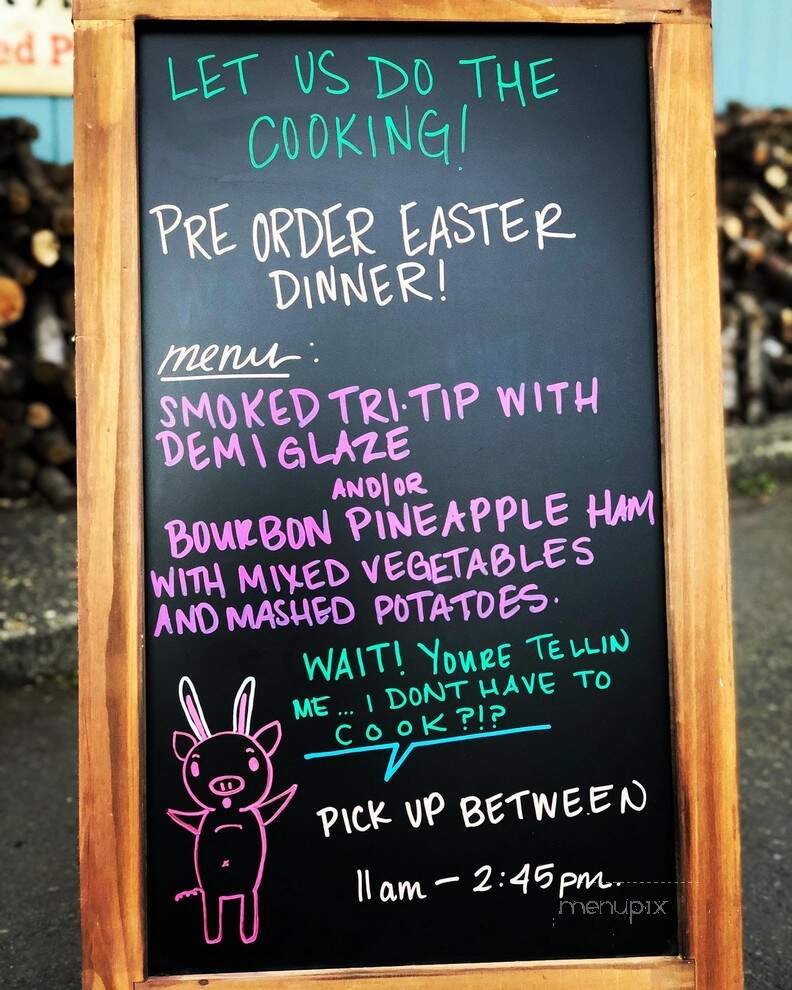 ed P
LET US DO THE
COOKING!
PRE ORDER EASTER
DINNER!
menu:
SMOKED TRI·TIP WITH
DEMI GLAZE
AND/OR
BOURBON PINEAPPLE HAM
WITH MIXED VEGETABLES
AND MASHED POTATOES.
WAIT! YOURE TELLIN
ME... I DONT HAVE TO
COOK?!?
PICK UP BETWEEN
11am - 2:45pm.
menupix